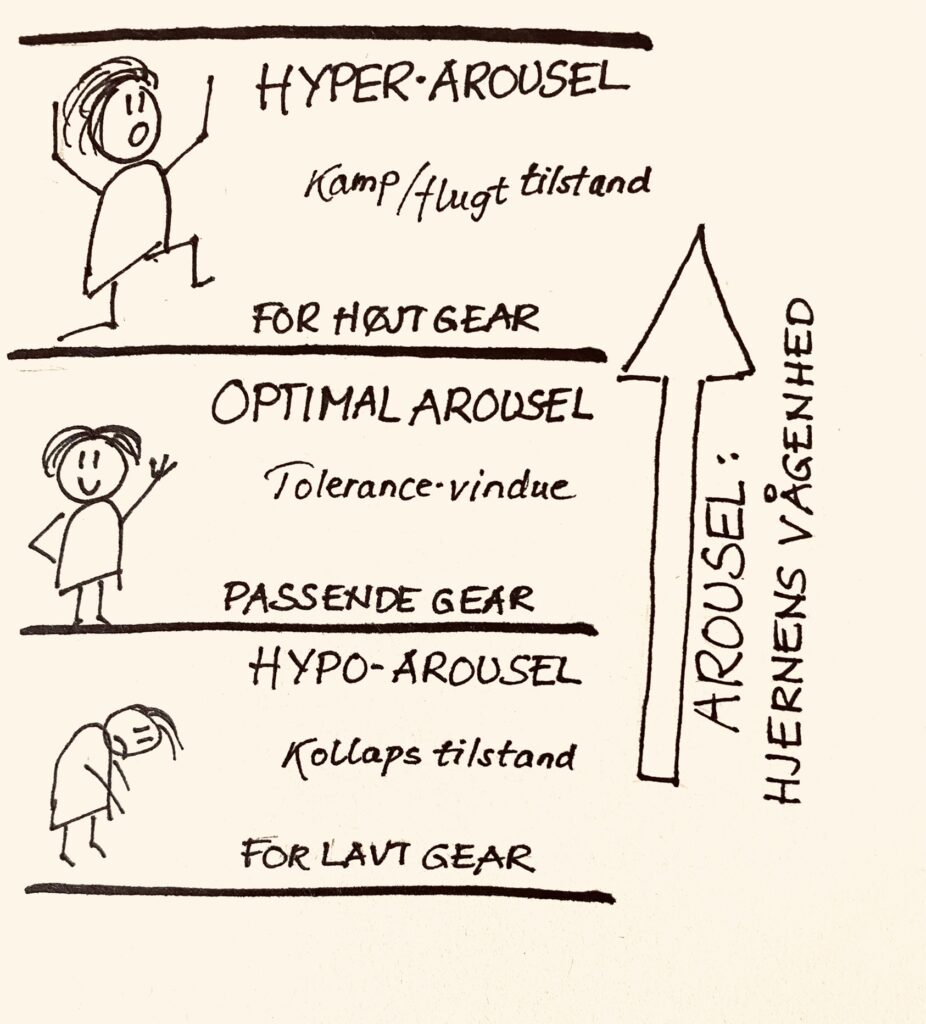 HYPER·AROUSEL
Kamp/flugt tilstand
FOR HØJT GEAR
OPTIMAL AROUSEL
Tolerance-vindue
PASSENDE GEAR
HYPO-AROUSEL
Kollaps tilstand
FOR LAVT GEAR
AROUSEL:
HJERNENS VÅGENHED